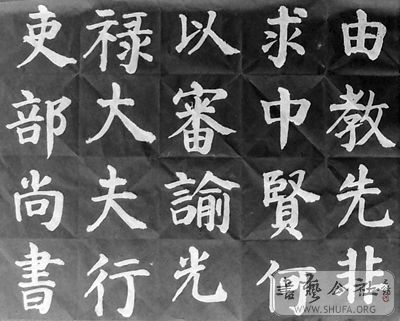 由教先非
求中賢何
以審諭光
禄大夫行
吏部尚書
書藝公社
WWW.SHUFA.ORG